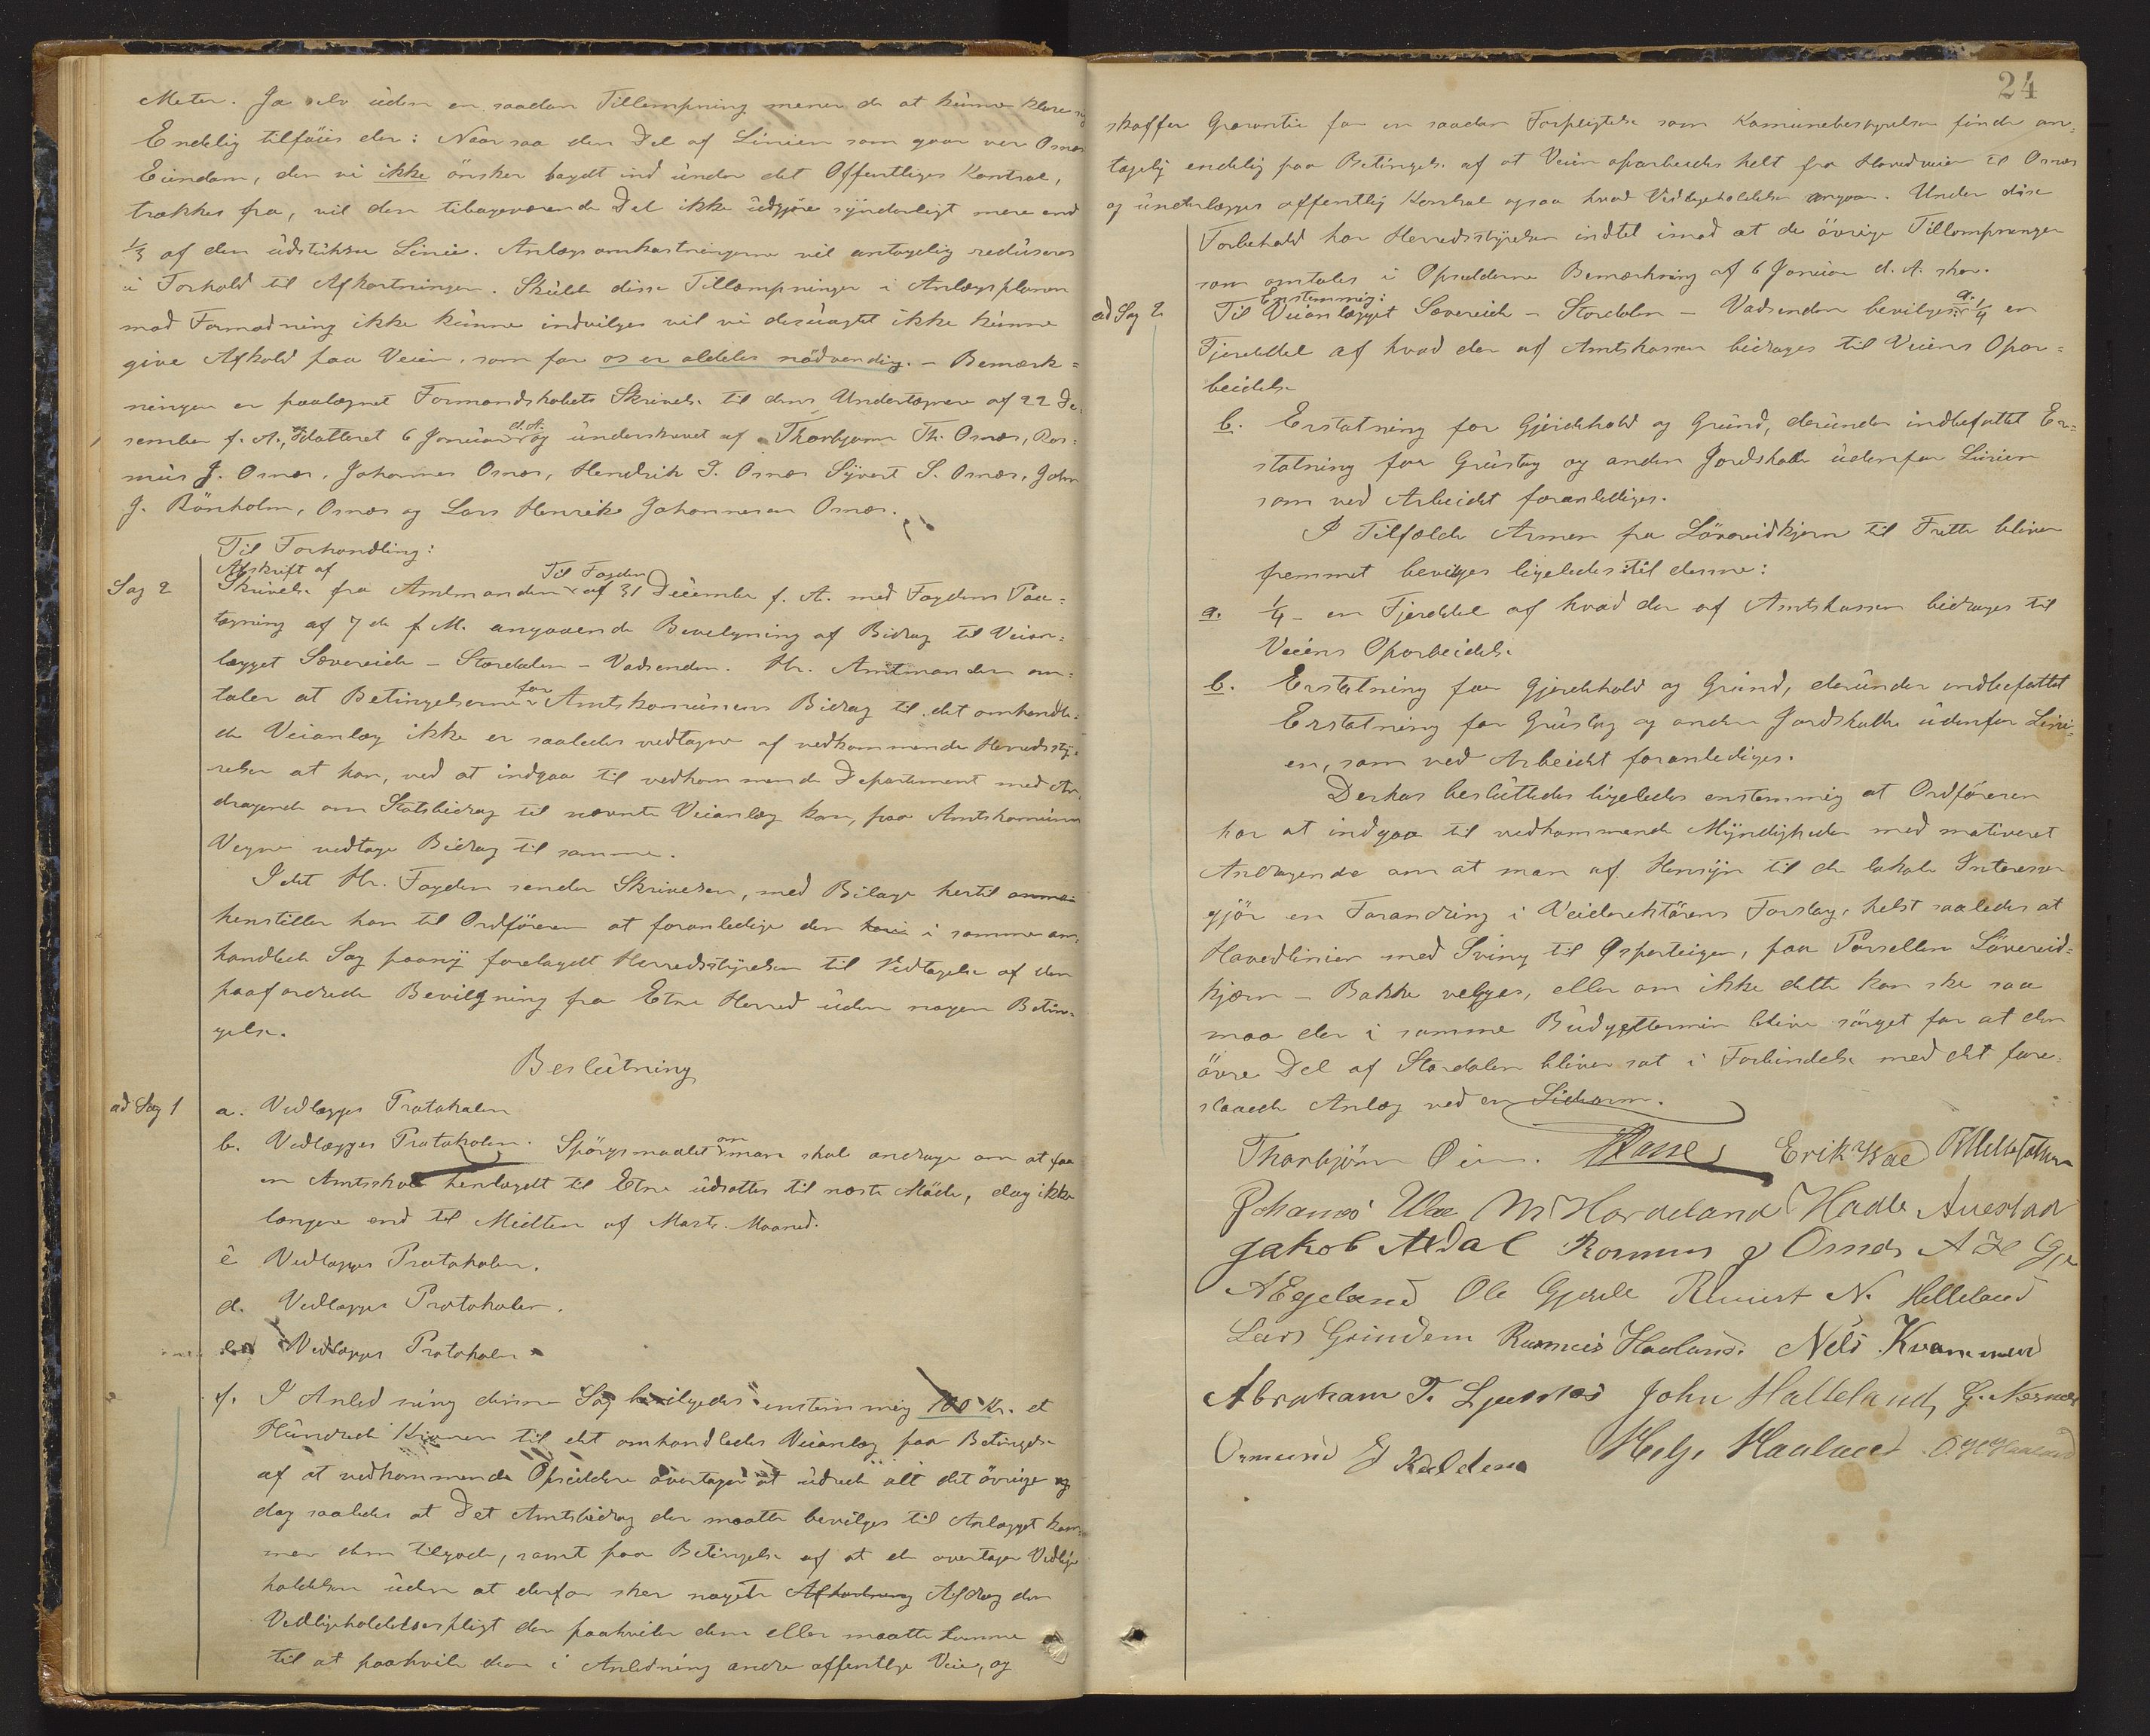 Meter. Ja selv uden en saadan Tillempning mener de at kunne klare sig
Endelig tilføies der: Naar saa den Del af Linien som gaar over Osnes
Eiendom, den vi ikke ønsker bøydt ind under det Offentliges Kontrol,
trækkes fra, vil den tilbageværende Del ikke udgjøre synderligt mere end
1/3 af den udstukne Linie. Anlægsomkostningerne vil antagelig reduseres
i Forhold til Afkortningen. Skulde disse Tillempninger i Anlægsplanen
mod Formodning ikke kunne indvilges vil vi desuagtet ikke kunne
give Afkald paa Veien, som for os er aldeles nødvendig. - Bemærk=
ningen er paategnet Formandskabets Skrivelse til dens Undertegnere af 22 De=
sember f. A., dateret 6 Januar d. A. og underskrevet af Thorbjørn Th. Osnes, Ras=
mus J. Osnes, Johannes Osnes, Hendrik I. Osnes Syvert S. Osnes, John
J. Rönholm, Osnes og Lars Henrik Johannesen Osnes.
Til Forhandling:
Sag 2
Afskrift af
Skrivelse fra Amtmanden Til Fogden af 31 December f. A. med Fogdens Paa=
tegning af 7de f. M. angaaende Bevilgning af Bidrag til Veian=
lægget Sævereide - Stordalen - Vadsenden. Hr. Amtmanden om=
taler at Betingelserne for Amtskomunens Bidrag til det omhandle=
de Veianlæg ikke er saaledes vedtagne af vedkommende Herredssty=
relse at han, ved at indgaa til vedkommende Departement med An=
dragende om Statsbidrag til nævnte Veianlæg kan, paa Amtskomunens
Vegne vedtage Bidrag til samme.
Idet Hr. Fogden sender Skrivelsen, med Bilage hertil
henstiller han til Ordføreren at foranledige den i samme om=
handlede Sag paany forelagdt Herredsstyrelsen til Vedtagelse af den
paafordrede Bevilgning fra Etne Herred uden nogen Betin=
gelse.
Beslutning
ad Sag 1
a. Vedlægges Protokolen
b. Vedlægges Protokolen. Spørgsmaalet om man skal andrage om at faa
en Amtsskole henlagdt til Etne udsættes til næste Møde, dog ikke
længere end til Midten af Marts Maaned.
c Vedlægges Protokolen.
d. Vedlægges Protokolen.
e. Vedlægges Protokolen
f. I Anledning denne Sag bevilgedes enstemmig 100 Kr. et
Hundrede Kroner til det omhandlede Veianlæg paa Betingelse
af at vedkommende Opsiddere overtager at udrede alt det øvrige og
dog saaledes at det Amtsbidrag der maatte bevilges til Anlægget kom=
mer dem tilgode, samt paa Betingelse af at de overtager Vedlige
holdelsen uden at derfor sker noget Afkortning Afdrag den
Vedligeholdelsespligt der paahviler dem eller maatte komme
til at paahvile dem i Anledning andre offentlige Veie, og
24
skaffer Garantie for en saadan Forpligtelse som Komunebestyrelsen finder an=
tagelig endelig paa Betingelse af at Veien oparbeides helt fra Hovedveien til Osnes
og underlægges offentlig Kontrol ogsaa hvad Vedligeholdelsen angaar. Under disse
Forbehold har Herredsstyrelsen indtet imod at de øvrige Tillempninger
som omtales i Opsiddernes Bemærkning af 6 Januar d. A. sker.
ad Sag 2
Enstemmig:
Til Veianlægget Sævereide - Stordalen - Vadsenden bevilges: a. 1/4 en
Fjerdedel af hvad der af Amtskassen bidrages til Veiens Opar=
beidelse
b. Erstatning for Gjerdehold og Grund, derunder indbefattet Er=
statning for Grustag og anden Jordskade udenfor Linien
som ved Arbeidet foranlediges.
I Tilfælde Armen fra Løvereidkjørn til Frette bliver
fremmet bevilges ligeledes til denne:
a. 1/4 - en Fjerdedel af hvad der af Amtskassen bidrages til
Veiens Oparbeidelse
b. Erstatning for Gjerdehold og Grund, derunder indbefattet
Erstatning for Grustag og anden Jordskade udenfor Lini=
en, som ved Arbeidet foranlediges.
Derhos besluttedes ligeledes enstemmig at Ordføreren
har at indgaa til vedkommende Myndigheder med motiveret
Andragende om at man af Hensyn til de lokale Interesser
gjør en Forandring i Veidirektørens Forslag, helst saaledes at
Hovedlinien med Sving til Ospeteigen, paa Parsellen Løvereid=
kjørn - Bakke velges, eller om ikke dette kan ske saa
maa der i samme Budgettermin blive sørget for at den
øvre Del af Stordalen bliver sat i Forbindelse med det fore=
slaaede Anlæg ved en Sidearm.
Thorbjørn Øien. Erik Bae
Johannes Vae M Hardeland Hadle Auestad
Jakob Ædal Rasmus J Osnes A H Gje
A Egeland Ole Gjerde Knut N. Helleland
Lars Grindem Rasmus Haaland. Nels Kvammen
Abraham T. Ljusnes John Halleland, G. Næsnes
Osmund E Kalden Helje Haaland